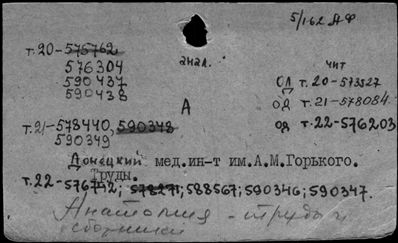 5/162 АФ
т.20-575762
576304
590437
590438
анал.
чит
ОД т.20-573527
ОД т.21-578084.
од т.22-576203
А
т.21-578440, 590348
590349
Донецкий мед.ин-т им.А.М.Горького.
Труды.
т.22-576742; 578271; 588567; 590346; 590347.
Анатомия - труды и
сборники